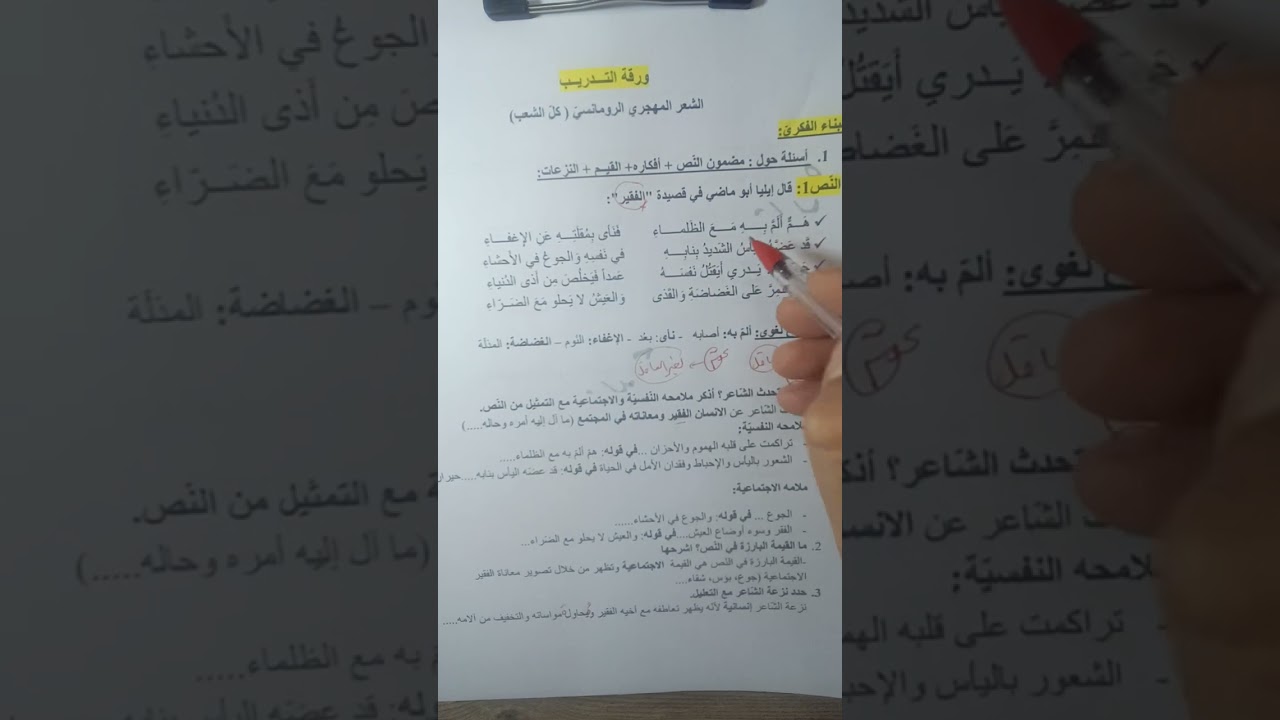 ورقة التـــدريـــب
الشعر المهجري الرومانسيّ ( كلّ الشعب)
بناء الفكريّ:
1. أسئلة حول : مضمون النّص + أفكاره+ القيـم + النّزعات:
النّص1: قال إيليا أبو ماضي في قصيدة "الفقير":
هَــمٌّ أَلَمَّ بِـــهِ مَـــعَ الظَلمـــاءِ فَنَأى بِمُقلَتِـــهِ عَنِ الإِغفـــاءِ
قَد عَضَّـ الشَديدُ بِنابِـــهِ في نَفسِهِ وَالجوعُ في الأَحشاءِ
يَــدري أَيَقتُلُ نَفسَـــهُ عَمداً فَيَخلُصَ مِن أَذى الدُنياءِ
عَلى الغَضاضَةِ وَالقَذى وَالعَيشُ لا يَحلو مَعَ الضَـــرّاءِ
لغوي: ألمّ به: أصابه - نأى: بعُد - الإغفاء: النّوم – الغضاضة: المذلّة
تحدث الشّاعر؟ أذكر ملامحه النّفسيّة والاجتماعية مع التمثيل من النّص.
الشّاعر عن الانسان الفقير ومعاناته في المجتمع (ما آل إليه أمره وحاله.....)
لامحه النفسيّة:
- تراكمت على قلبه الهموم والأحزان ...في قوله: همّ ألم به مع الظلماء.....
- الشعور باليأس والإحباط وفقدان الأمل في الحياة في قوله: قد عضّه اليأس بنابه.....حيران
ملامه الاجتماعية:
- الجوع ... في قوله: والجوع في الأحشاء......
- الفقر وسوء أوضاع العيش....في قوله: والعيش لا يحلو مع الضّراء...
2. ما القيمة البارزة في النّص؟ اشرحها
-القيمة البارزة في النّص هي القيمة الاجتماعية وتظهر من خلال تصوير معاناة الفقير
الاجتماعية (جوع، بؤس، شقاء....
3. حدد نزعة الشّاعر مع التعليل.
نزعة الشّاعر إنسانية لأنه يظهر تعاطفه مع أخيه الفقير ويحاول مواساته والتخفيف من آلامه.....